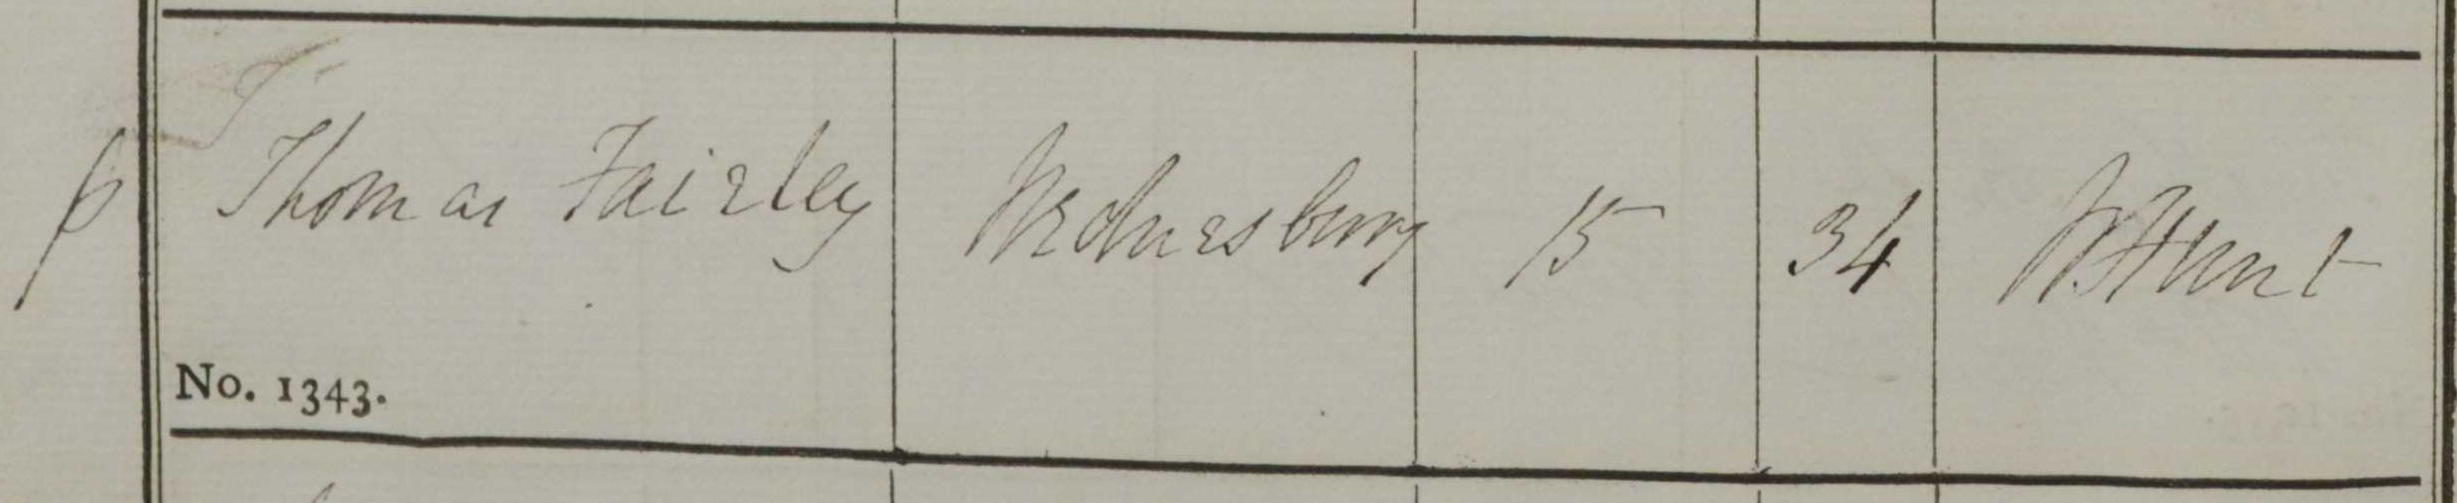 p Thomas Fairley Wednesbury 15 34 W Hunt
No. 1343.